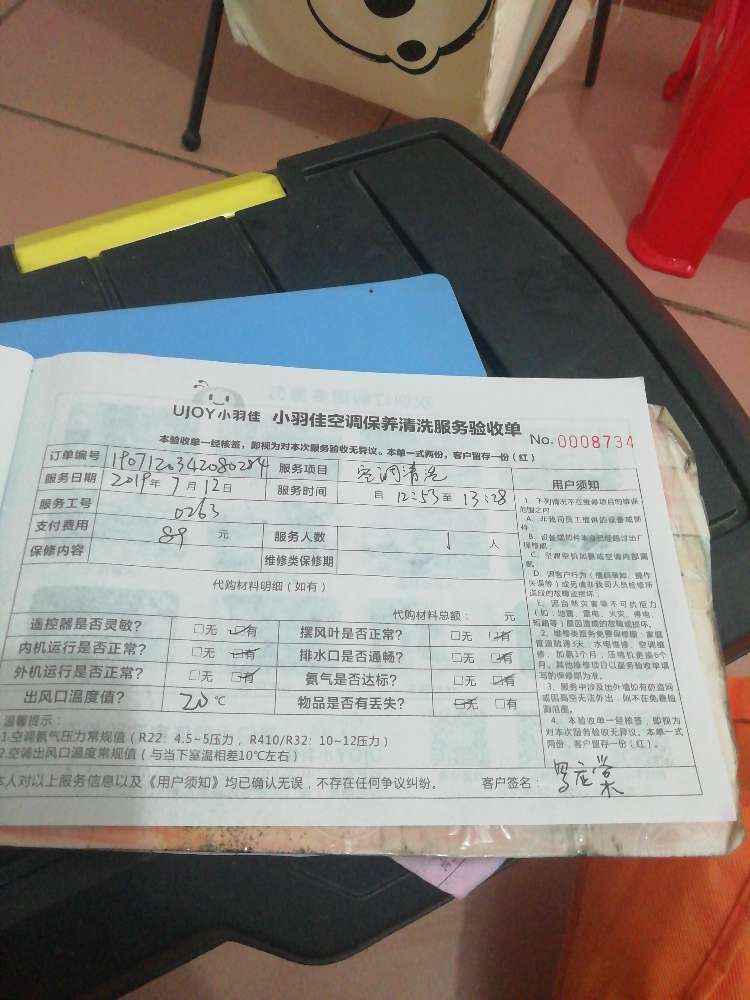 UJOY小羽佳 小羽佳空调保养清洗服务验收单
No.0008734
本验收单一经核签，即视为对本次服务验收无异议。本单一式两份，客户留存一份（红）
订单编号 1907120342080284 服务项目 空调清洗
服务日期 2019年7月12日 服务时间 自12:53至13:28
服务工号 0263
支付费用 89 元 服务人数 1 人
保修内容 维修类保修期
代购材料明细（如有）
代购材料总额： 元
遥控器是否灵敏？ □无 ☑有 摆风叶是否正常？ □无 ☑有
内机运行是否正常？ □无 ☑有 排水口是否通畅？ □无 ☑有
外机运行是否正常？ □无 ☑有 氨气是否达标？ □无 □有
出风口温度值？ 20℃ 物品是否有丢失？ ☑无 □有
温馨提示：
1.空调氨气压力常规值（R22: 4.5~5压力， R410/R32: 10~12压力）
2.空调出风口温度常规值（与当下室温相差10℃左右）
本人对以上服务信息以及《用户须知》均已确认无误，不存在任何争议纠纷。 客户签名：
用户须知
1、下列情况不在维修项目的错误
范围之内
A、非我司员工提供的设备或部
件
C、空调空机加氨或空调内部漏
氨
E、因自然灾害等不可抗拒力
（如：地震、雷电、火灾、停电、
短路等）原因造成的故障或损坏。
2、维修类服务免费保修期：家庭
管道疏通3天，水电维修、空调维
修、加氨1个月，压缩机更换6个
月。其他维修项目以服务验收单填
写的保修期为准。
3、服务中涉及出外墙如有防盗网
或因高空无法外出，则不在免责检
测范围。
4、本验收单一经核签，即视为
对本次服务验收无异议。本单一式
两份，客户留存一份（红）。